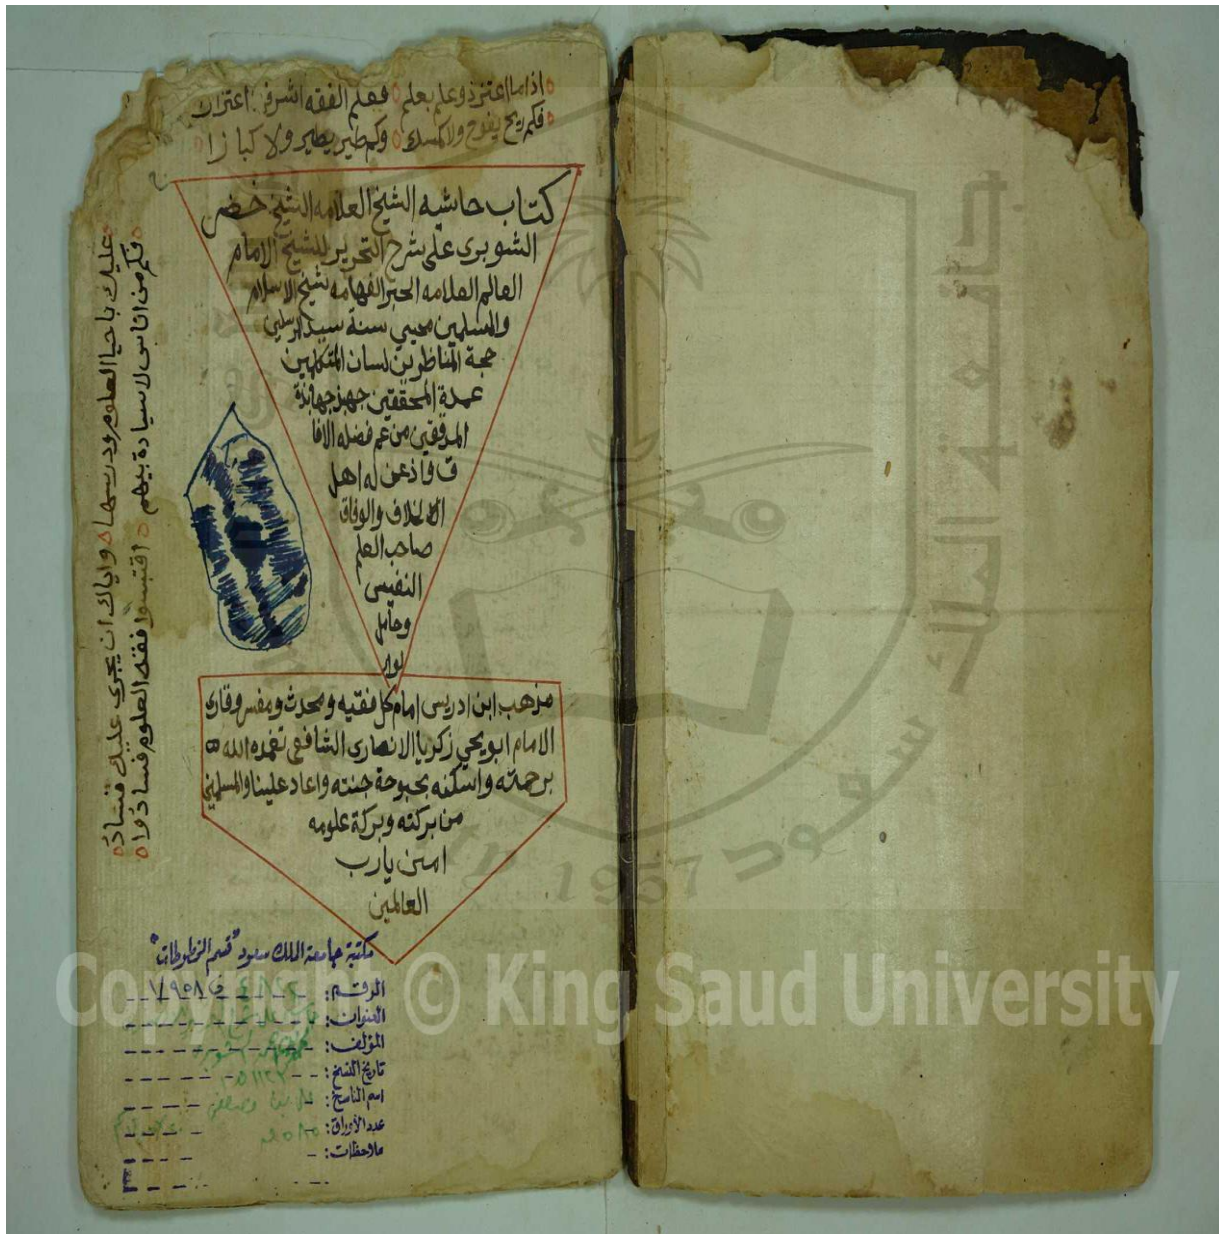 اذا ما اعتز ذو علم بعلم فعلم الفقه اشرف في اعتزاز
فكم ريح يفوح ولا كمسك وكم طير يطير ولا كبازا
كتاب حاشيه الشيخ العلامه الشيخ خضر
الشوبري على شرح التحرير للشيخ الامام
العالم العلامه الحبر الفهامه شيخ الاسلام
والمسلمين محيي سنة سيد المرسلين
حجة المناظرين لسان المتكلمين
عمدة المحققين جهبذ جهابذة
المدققين من عم فضله الافا
ق واذعن له اهل
الخلاف والوفاق
صاحب العلم
النفيس
وحامل
لوا
مذهب ابن ادريس امام كل فقيه ومحدث ومفسر وقارى
الامام ابو يحي زكريا الانصارى الشافعى تغمده الله
برحمته واسكنه بحبوحة جنته واعاد علينا والمسلمين
من بركته وبركة علومه
امين يارب
العالمين
عليك باحيا العلوم ودرسها واياك ان يجرى عليك فساد
فكم من اناس لا سيادة بينهم اقتبسوا فقه العلوم فسادوا
مكتبة جامعة الملك سعود "قسم المخطوطات"
الرقم:
العنوان:
المؤلف:
تاريخ النسخ:
اسم الناسخ:
عدد الأوراق:
ملاحظات:
جامعة الملك سعود
1957
Copyright © King Saud University